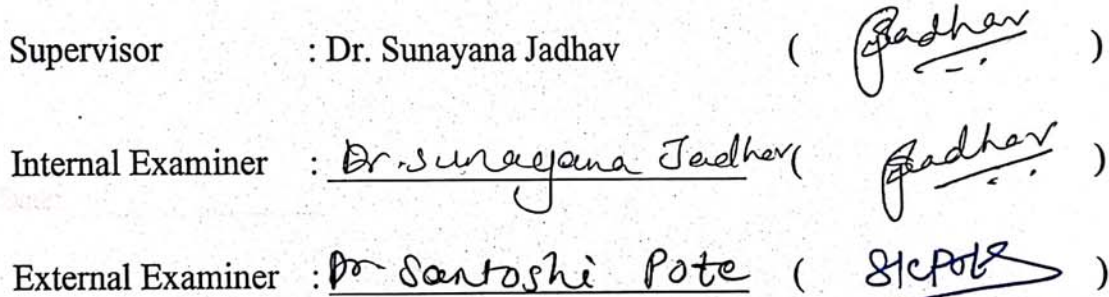 Supervisor : Dr. Sunayana Jadhav ( Jadhav )
Internal Examiner : Dr. Sunayana Jadhav ( Jadhav )
External Examiner : Dr Santoshi Pote ( SKPote )